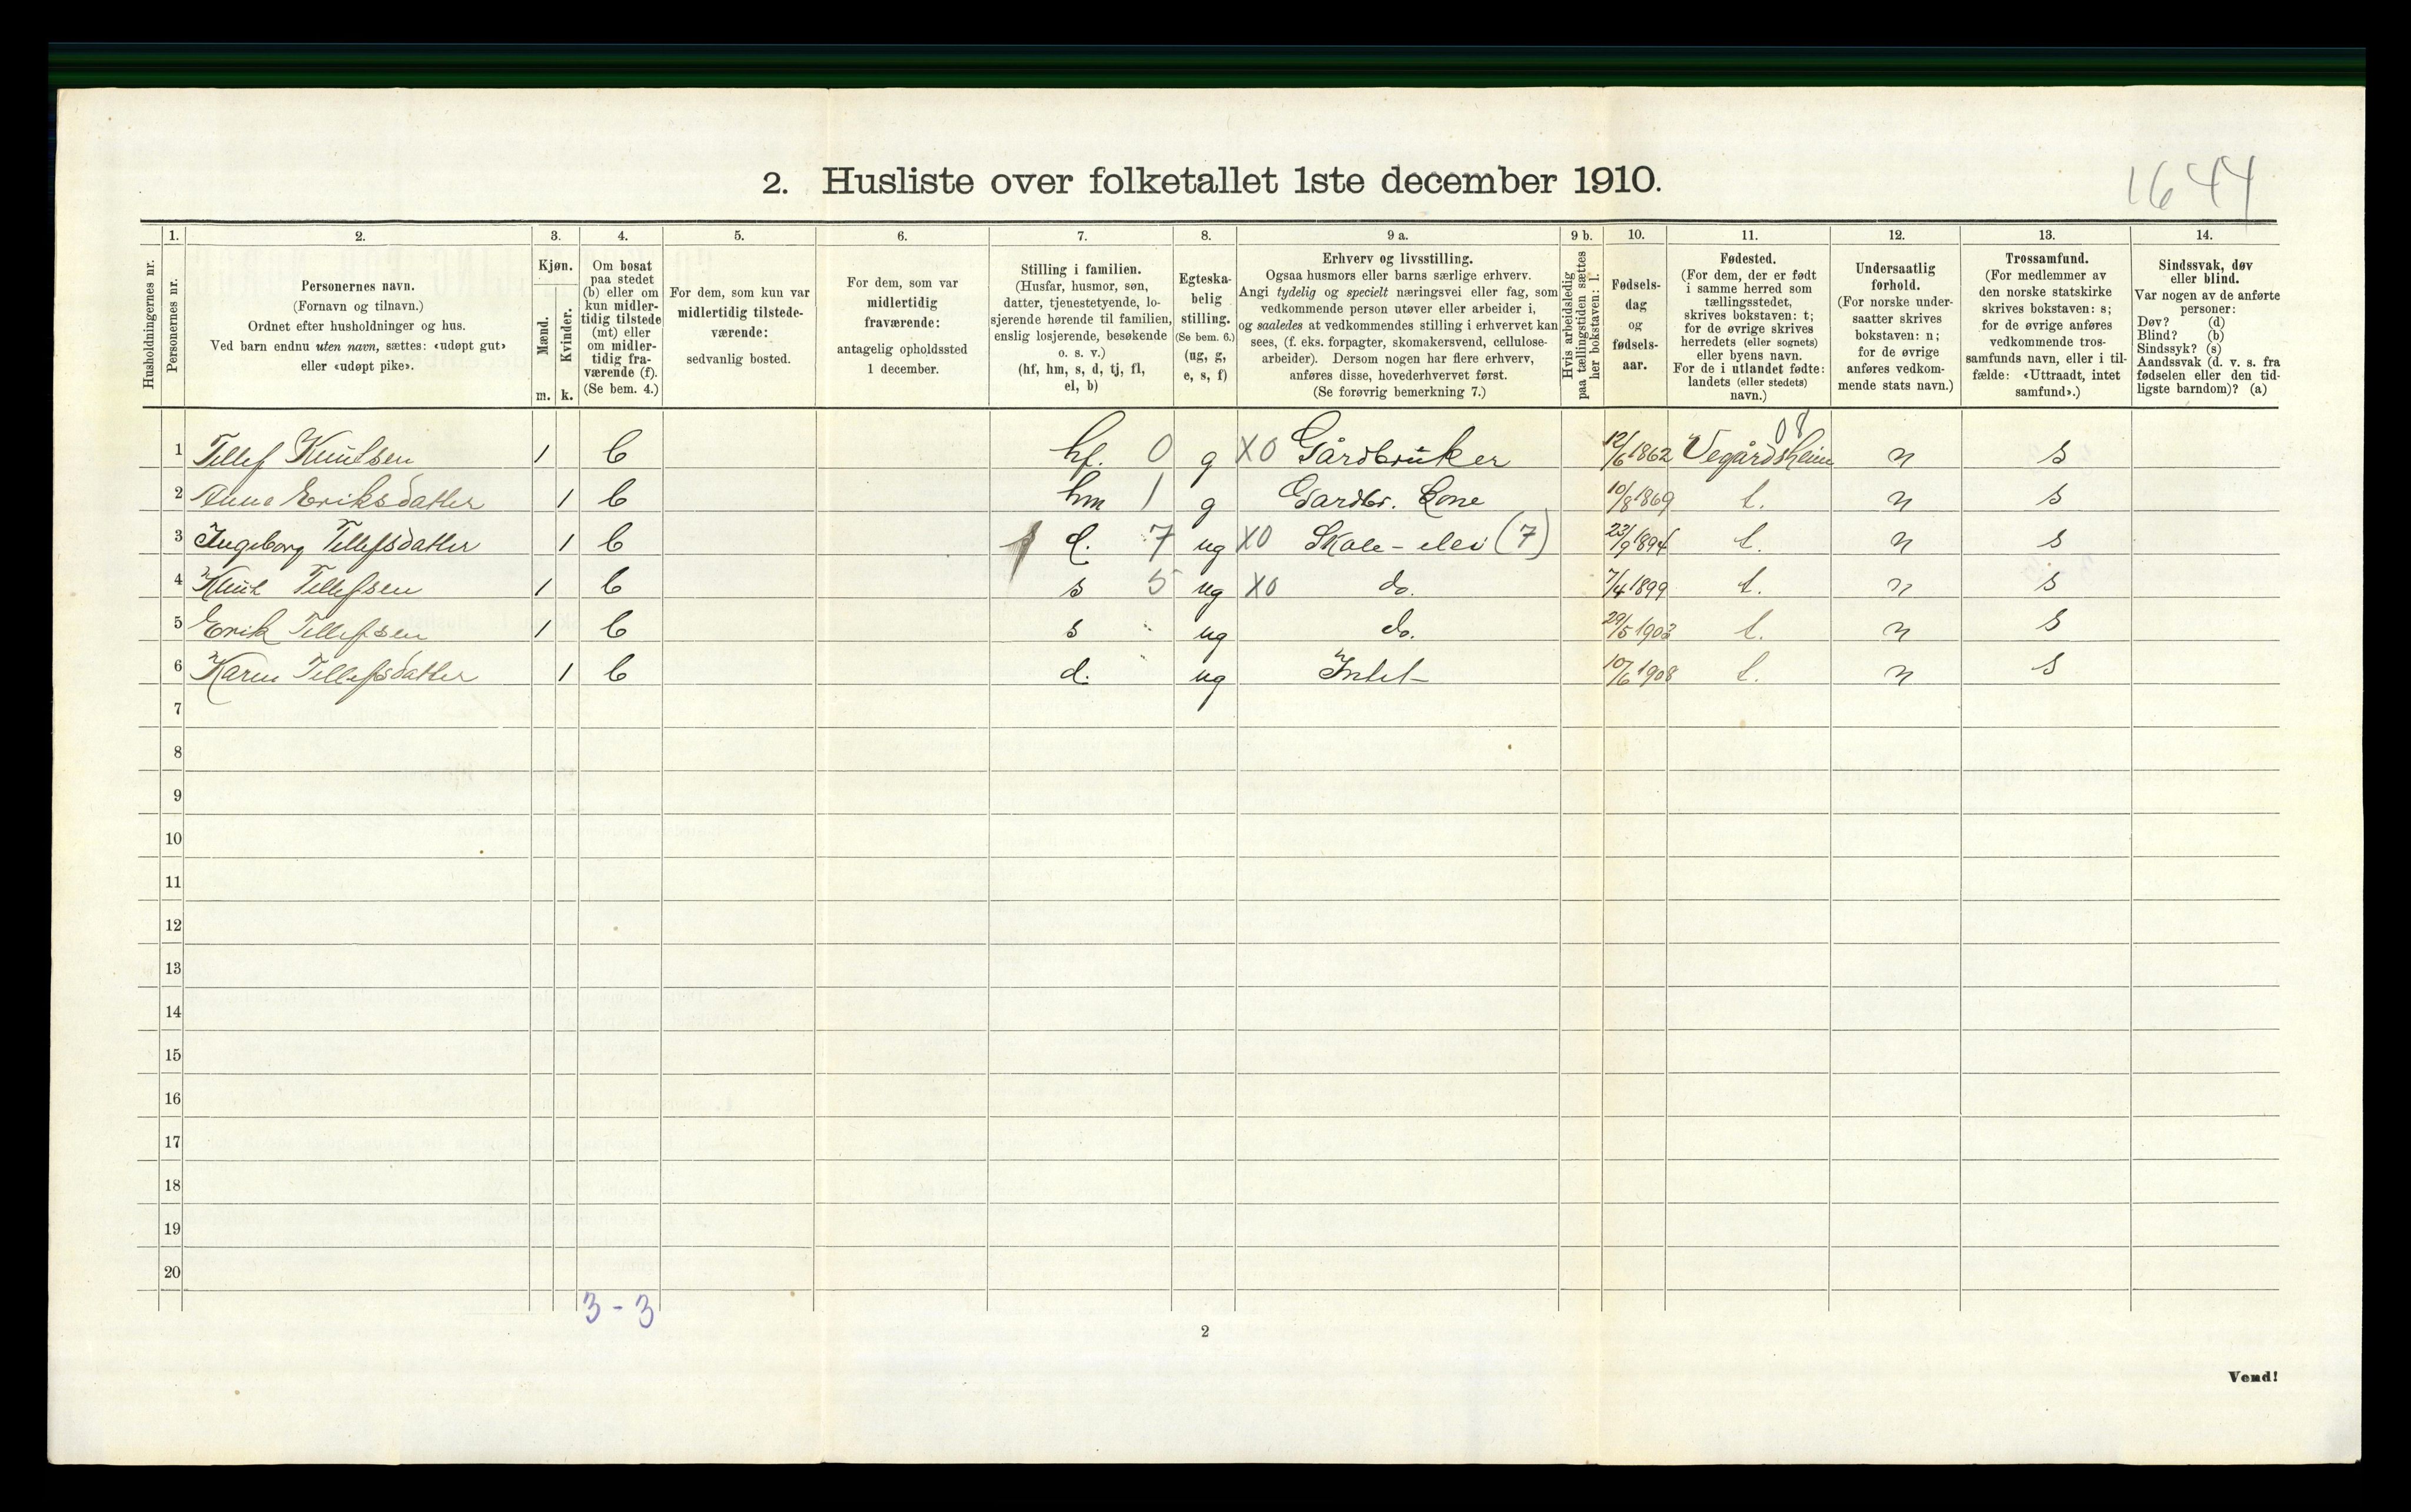 2. Husliste over folketallet 1ste december 1910.
1644
1. 2. 3. 4. 5. 6. 7. 8. 9 a. 9 b. 10. 11. 12. 13. 14.
Husholdningernes nr.
Personernes nr.
Personernes navn.
(Fornavn og tilnavn.)
Ordnet efter husholdninger og hus.
Ved barn endnu uten navn, sættes: «udøpt gut»
eller «udøpt pike».
Kjøn.
Mænd.
Kvinder.
m. k.
Om bosat
paa stedet
(b) eller om
kun midler-
tidig tilstede
(mt) eller
om midler-
tidig fra-
værende (f).
(Se bem. 4.)
For dem, som kun var
midlertidig tilstede-
værende:
sedvanlig bosted.
For dem, som var
midlertidig
fraværende:
antagelig opholdssted
1 december.
Stilling i familien.
(Husfar, husmor, søn,
datter, tjenestetyende, lo-
sjerende hørende til familien,
enslig losjerende, besøkende
o. s. v.)
(hf, hm, s, d, tj, fl,
el, b)
Egteska-
belig
stilling.
(Se bem. 6.)
(ug, g,
e, s, f)
Erhverv og livsstilling.
Ogsaa husmors eller barns særlige erhverv.
Angi tydelig og specielt næringsvei eller fag, som
vedkommende person utøver eller arbeider i,
og saaledes at vedkommendes stilling i erhvervet kan
sees, (f. eks. forpagter, skomakersvend, cellulose-
arbeider). Dersom nogen har flere erhverv,
anføres disse, hovederhvervet først.
(Se forøvrig bemerkning 7.)
Hvis arbeidsledig
paa tællingstiden sættes
her bokstaven: l.
Fødsels-
dag
og
fødsels-
aar.
Fødested.
(For dem, der er født
i samme herred som
tællingsstedet,
skrives bokstaven: t;
for de øvrige skrives
herredets (eller sognets)
eller byens navn.
For de i utlandet fødte:
landets (eller stedets)
navn.)
Undersaatlig
forhold.
(For norske under-
saatter skrives
bokstaven: n;
for de øvrige
anføres vedkom-
mende stats navn.)
Trossamfund.
(For medlemmer av
den norske statskirke
skrives bokstaven: s;
for de øvrige anføres
vedkommende tros-
samfunds navn, eller i til-
fælde: «Uttraadt, intet
samfund».)
Sindssvak, døv
eller blind.
Var nogen av de anførte
personer:
Døv? (d)
Blind? (b)
Sindssyk? (s)
Aandssvak (d. v. s. fra
fødselen eller den tid-
ligste barndom)? (a)
08
1 Tellef Knutsen 1 b hf. 0 g X0 Gårdbruker 12/6 1862 Vegårdsheim n s
2 Anne Eriksdatter 1 b hm 1 g Gardbr. Kone 10/8 1869 t. n s
3 Ingeborg Tellefsdatter 1 b d. 7 ug X0 Skole-elev (7) 23/9 1894 t. n s
4 Knut Tellefsen 1 b s 5 ug X0 do. 7/4 1899 t. n s
5 Erik Tellefsen 1 b s ug do. 29/5 1903 t. n s
6 Karen Tellefsdatter 1 b d. ug Intet 10/6 1908 t. n s
7
8
9
10
11
12
13
14
15
16
17
18
19
20
3-3
2
Vend!